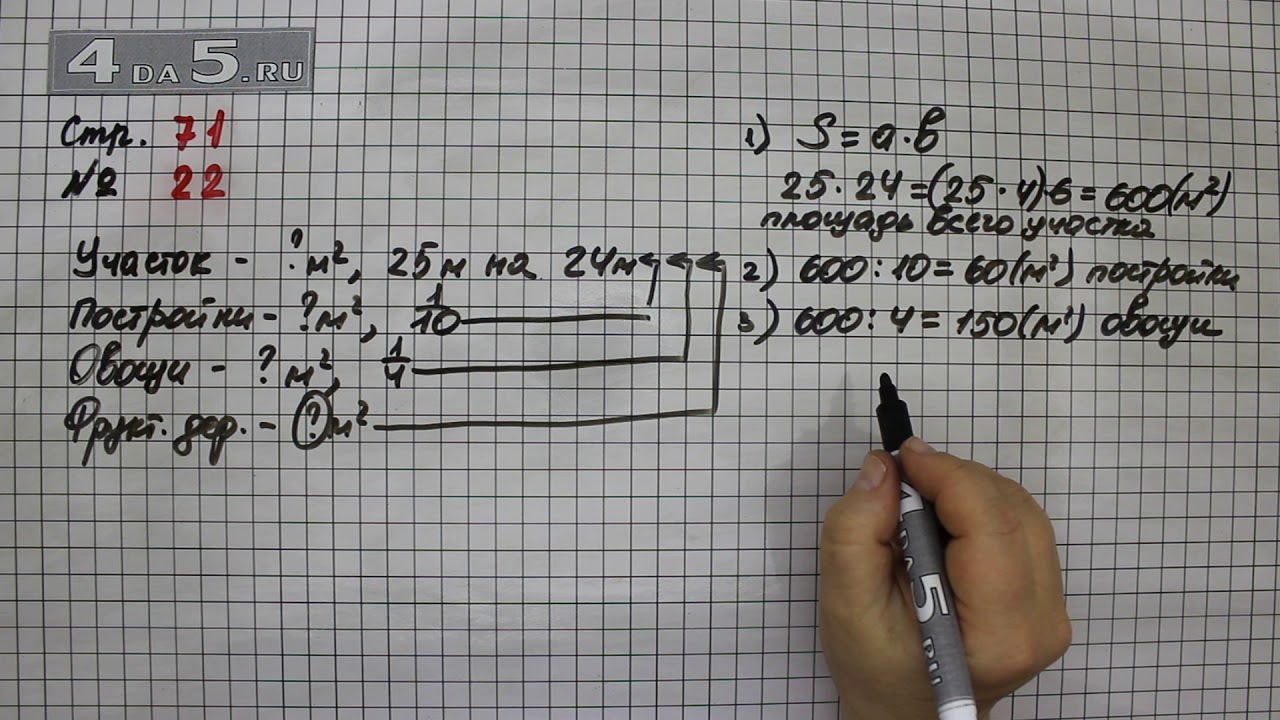 4DA5.RU
Стр. 71
№ 22
Участок - ? м², 25м на 24м
Постройки - ? м², 1/10
Овощи - ? м², 1/4
Фрукт. дер. - ? м²
1) S = a · b
25 · 24 = (25 · 4) · 6 = 600 (м²)
площадь всего участка
2) 600 : 10 = 60 (м²) постройки
3) 600 : 4 = 150 (м²) овощи
4DA5.RU